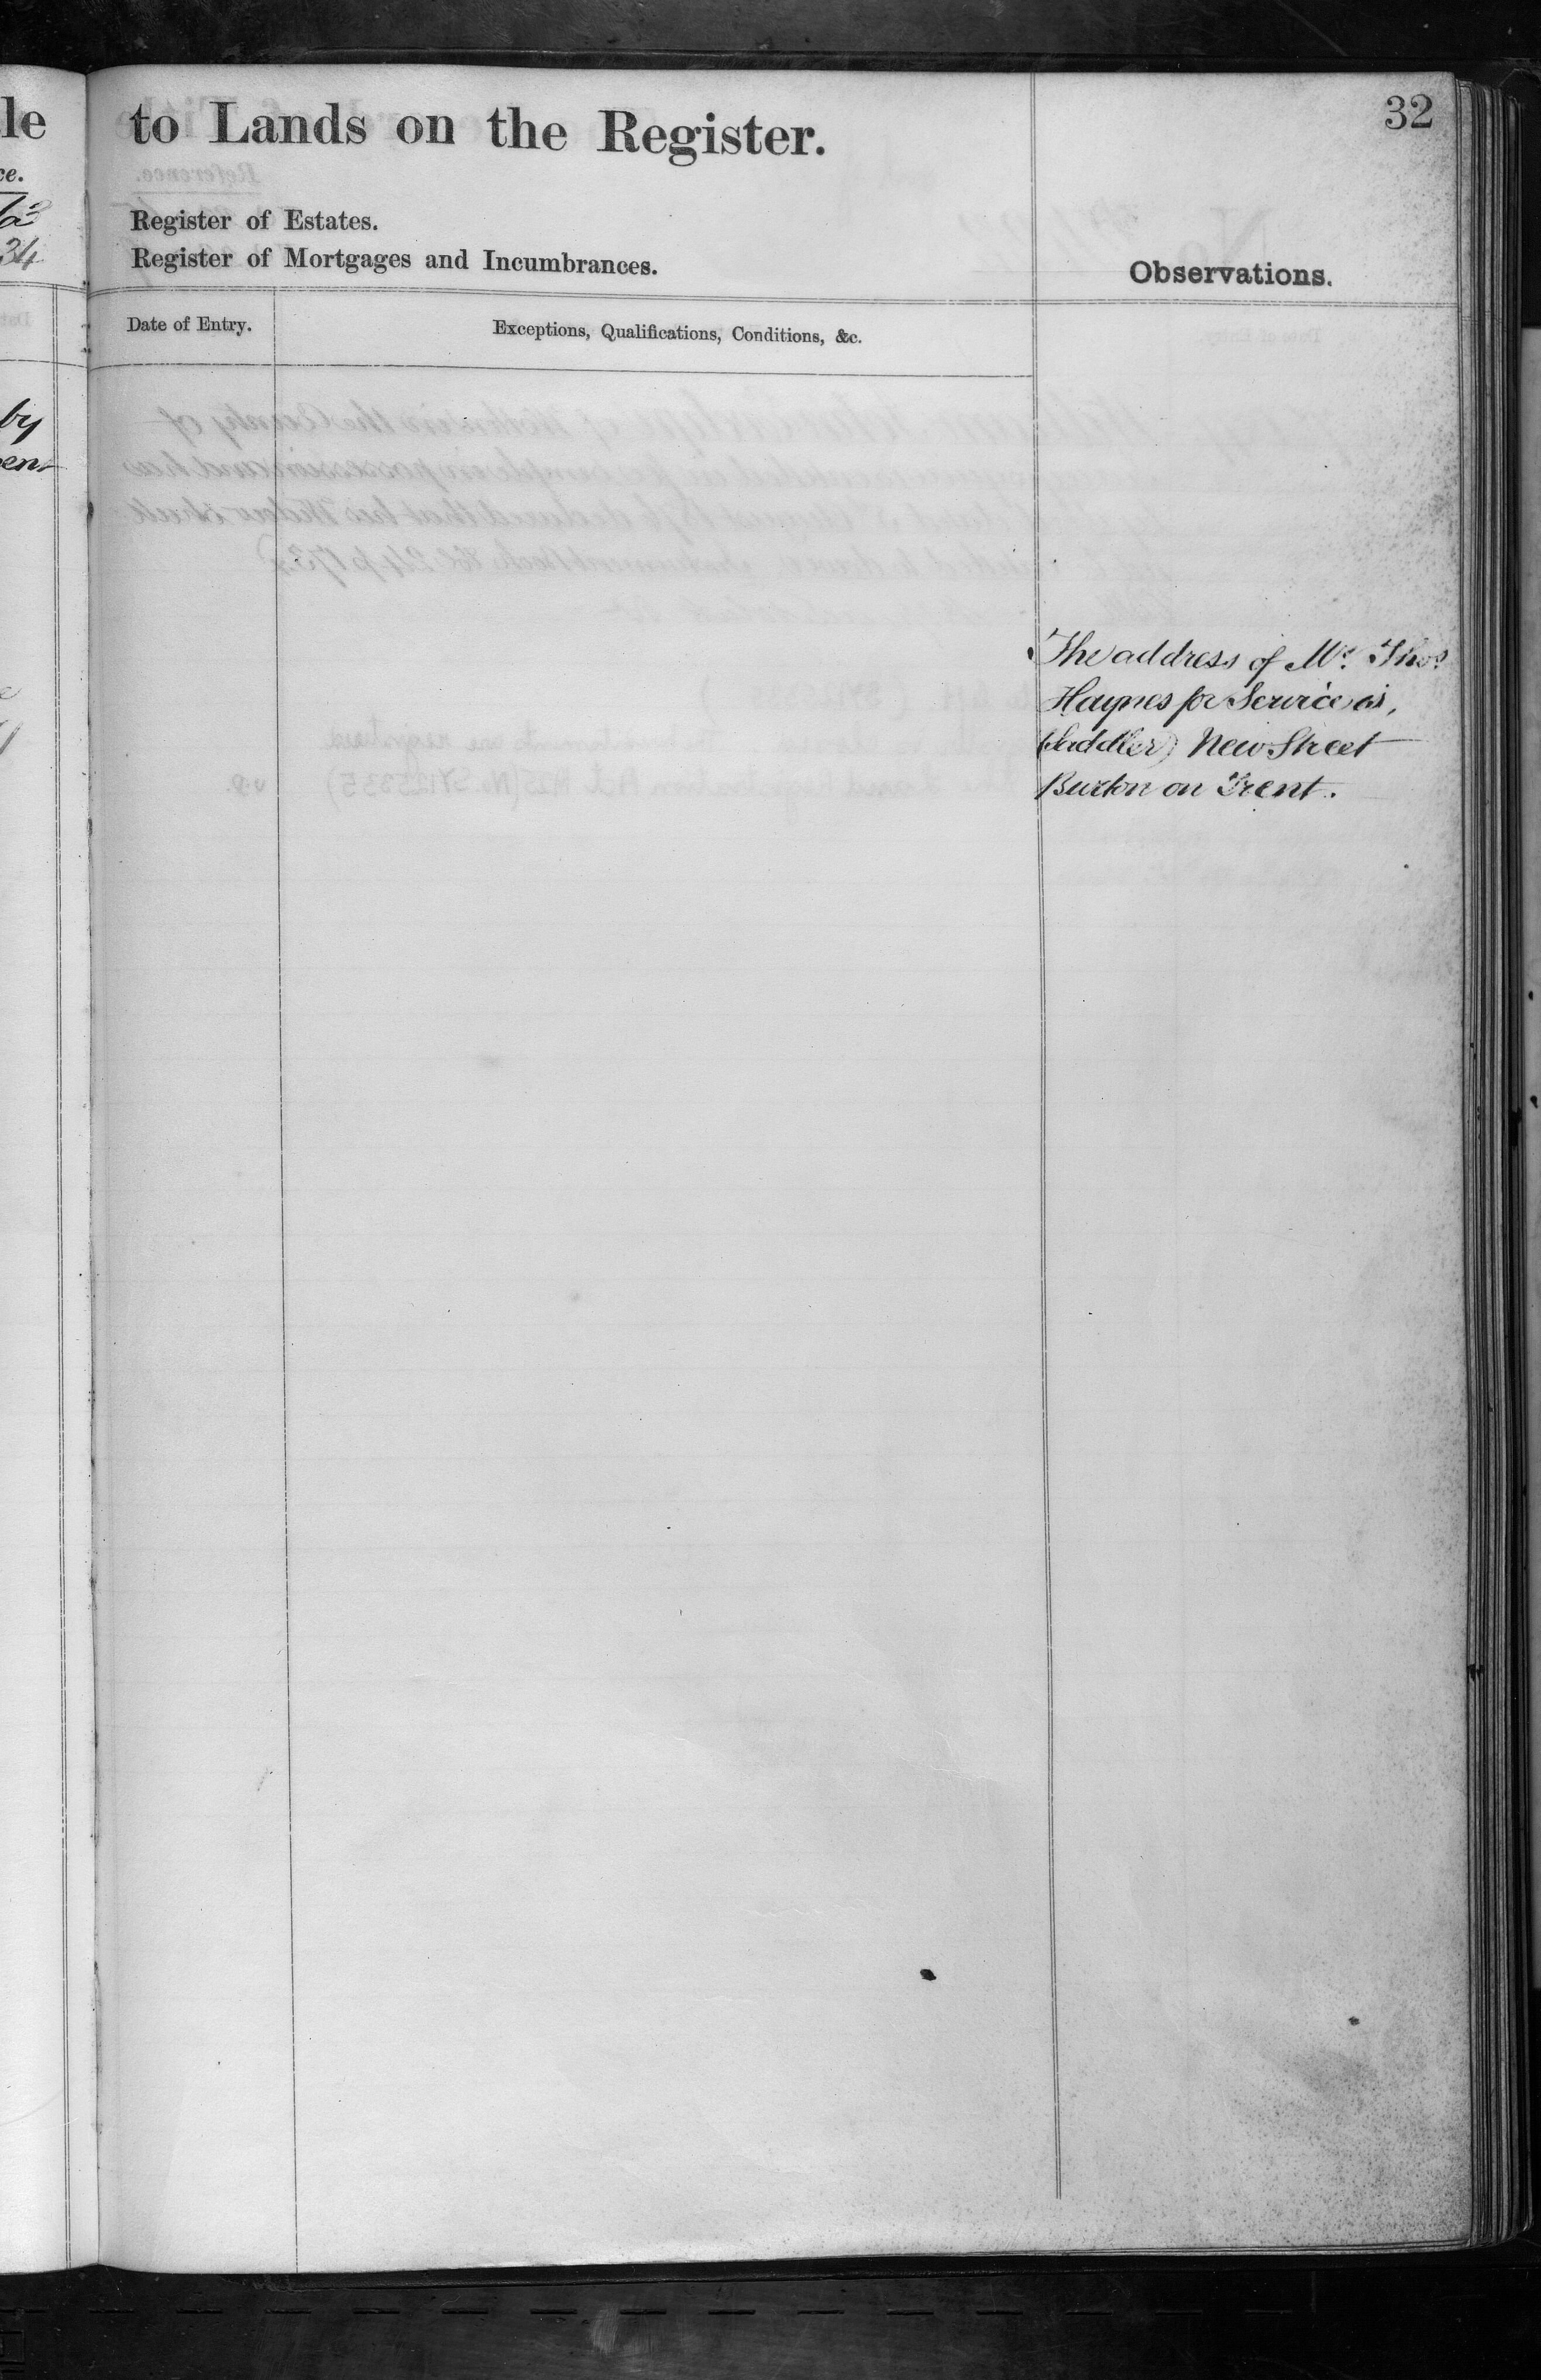 le
ce.
34
by
to Lands on the Register.
32
Register of Estates.
Register of Mortgages and Incumbrances.
Observations.
Date of Entry.
Exceptions, Qualifications, Conditions, &c.
The address of Mr. Thos.
Haynes for Service is,
(Saddler) New Street
Burton on Trent.